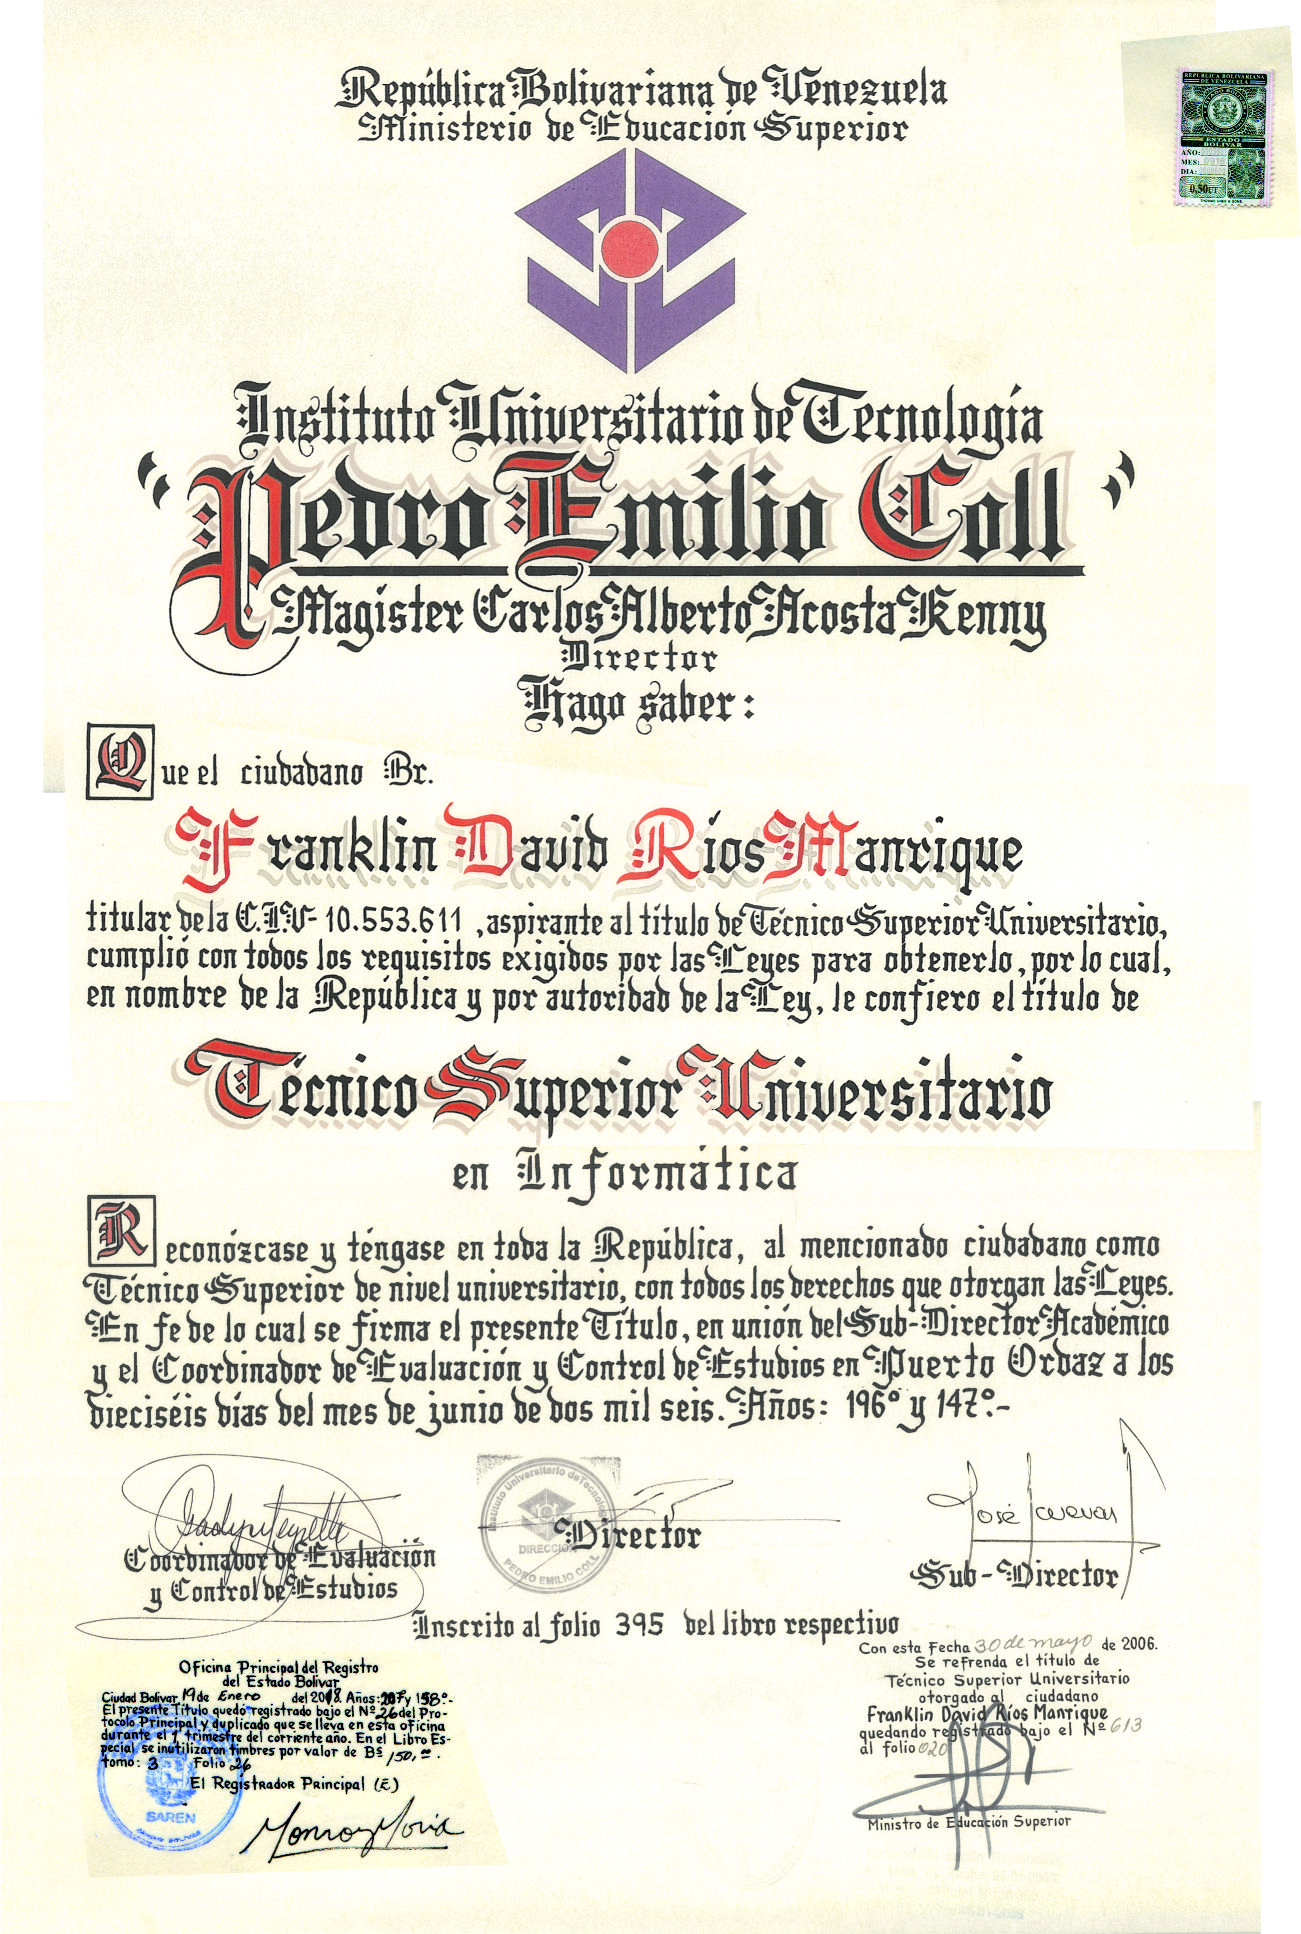 República Bolivariana de Venezuela
Ministerio de Educación Superior
REPUBLICA BOLIVARIANA
DE VENEZUELA
ESTADO
BOLIVAR
AÑO:
MES:
DIA:
0,50 UT
Instituto Universitario de Tecnología
"Pedro Emilio Coll"
Magister Carlos Alberto Acosta Kenny
Director
Hago saber:
Que el ciudadano Br.
Franklin David Ríos Manrique
titular de la C.I.V- 10.553.611 , aspirante al título de Técnico Superior Universitario,
cumplió con todos los requisitos exigidos por las Leyes para obtenerlo, por lo cual,
en nombre de la República y por autoridad de la Ley, le confiero el título de
Técnico Superior Universitario
en Informática
Reconózcase y téngase en toda la República, al mencionado ciudadano como
Técnico Superior de nivel universitario, con todos los derechos que otorgan las Leyes.
En fe de lo cual se firma el presente Título, en unión del Sub-Director Académico
y el Coordinador de Evaluación y Control de Estudios en Puerto Ordaz a los
dieciséis días del mes de junio de dos mil seis. Años: 196º y 147º.-
Instituto Universitario de Tecnología
DIRECCION
PEDRO EMILIO COLL
Director
José Cuevas
Coordinador de Evaluación
y Control de Estudios
Sub-Director
Inscrito al folio 395 del libro respectivo
Oficina Principal del Registro
del Estado Bolívar
Ciudad Bolívar 19 de Enero del 2018. Años: 207 y 158º.-
El presente Título quedó registrado bajo el Nº 26 del Pro-
tocolo Principal y duplicado que se lleva en esta oficina
durante el 1º trimestre del corriente año. En el Libro Es-
pecial se inutilizaron timbres por valor de Bs 150,=.
tomo: 3 Folio 26
El Registrador Principal (E)
SAREN
Con esta Fecha 30 de mayo de 2006.
Se refrenda el título de
Técnico Superior Universitario
otorgado al ciudadano
Franklin David Ríos Manrique
quedando registrado bajo el Nº 613
al folio 020
Ministro de Educación Superior